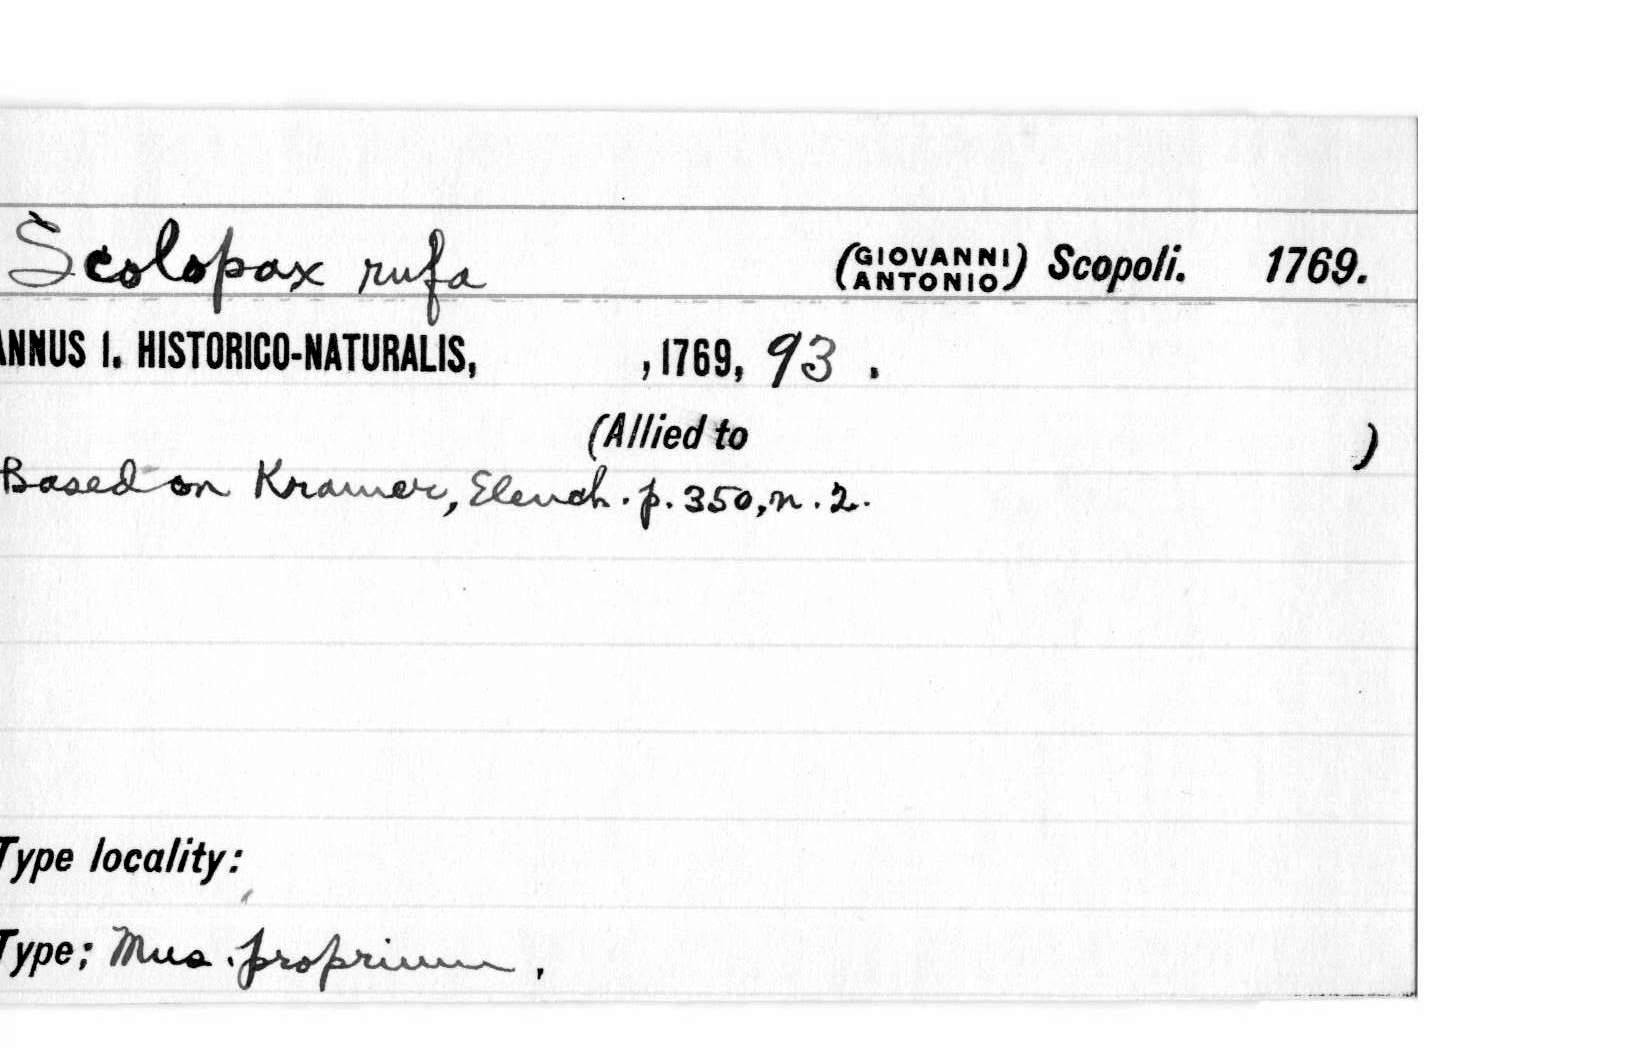 Scolopax rufa (GIOVANNI ANTONIO) Scopoli. 1769.
ANNUS I. HISTORICO-NATURALIS, , 1769, 93 .
(Allied to )
Based on Kramer, Elench. p. 350, n. 2.
Type locality:
Type; Mus. proprium .